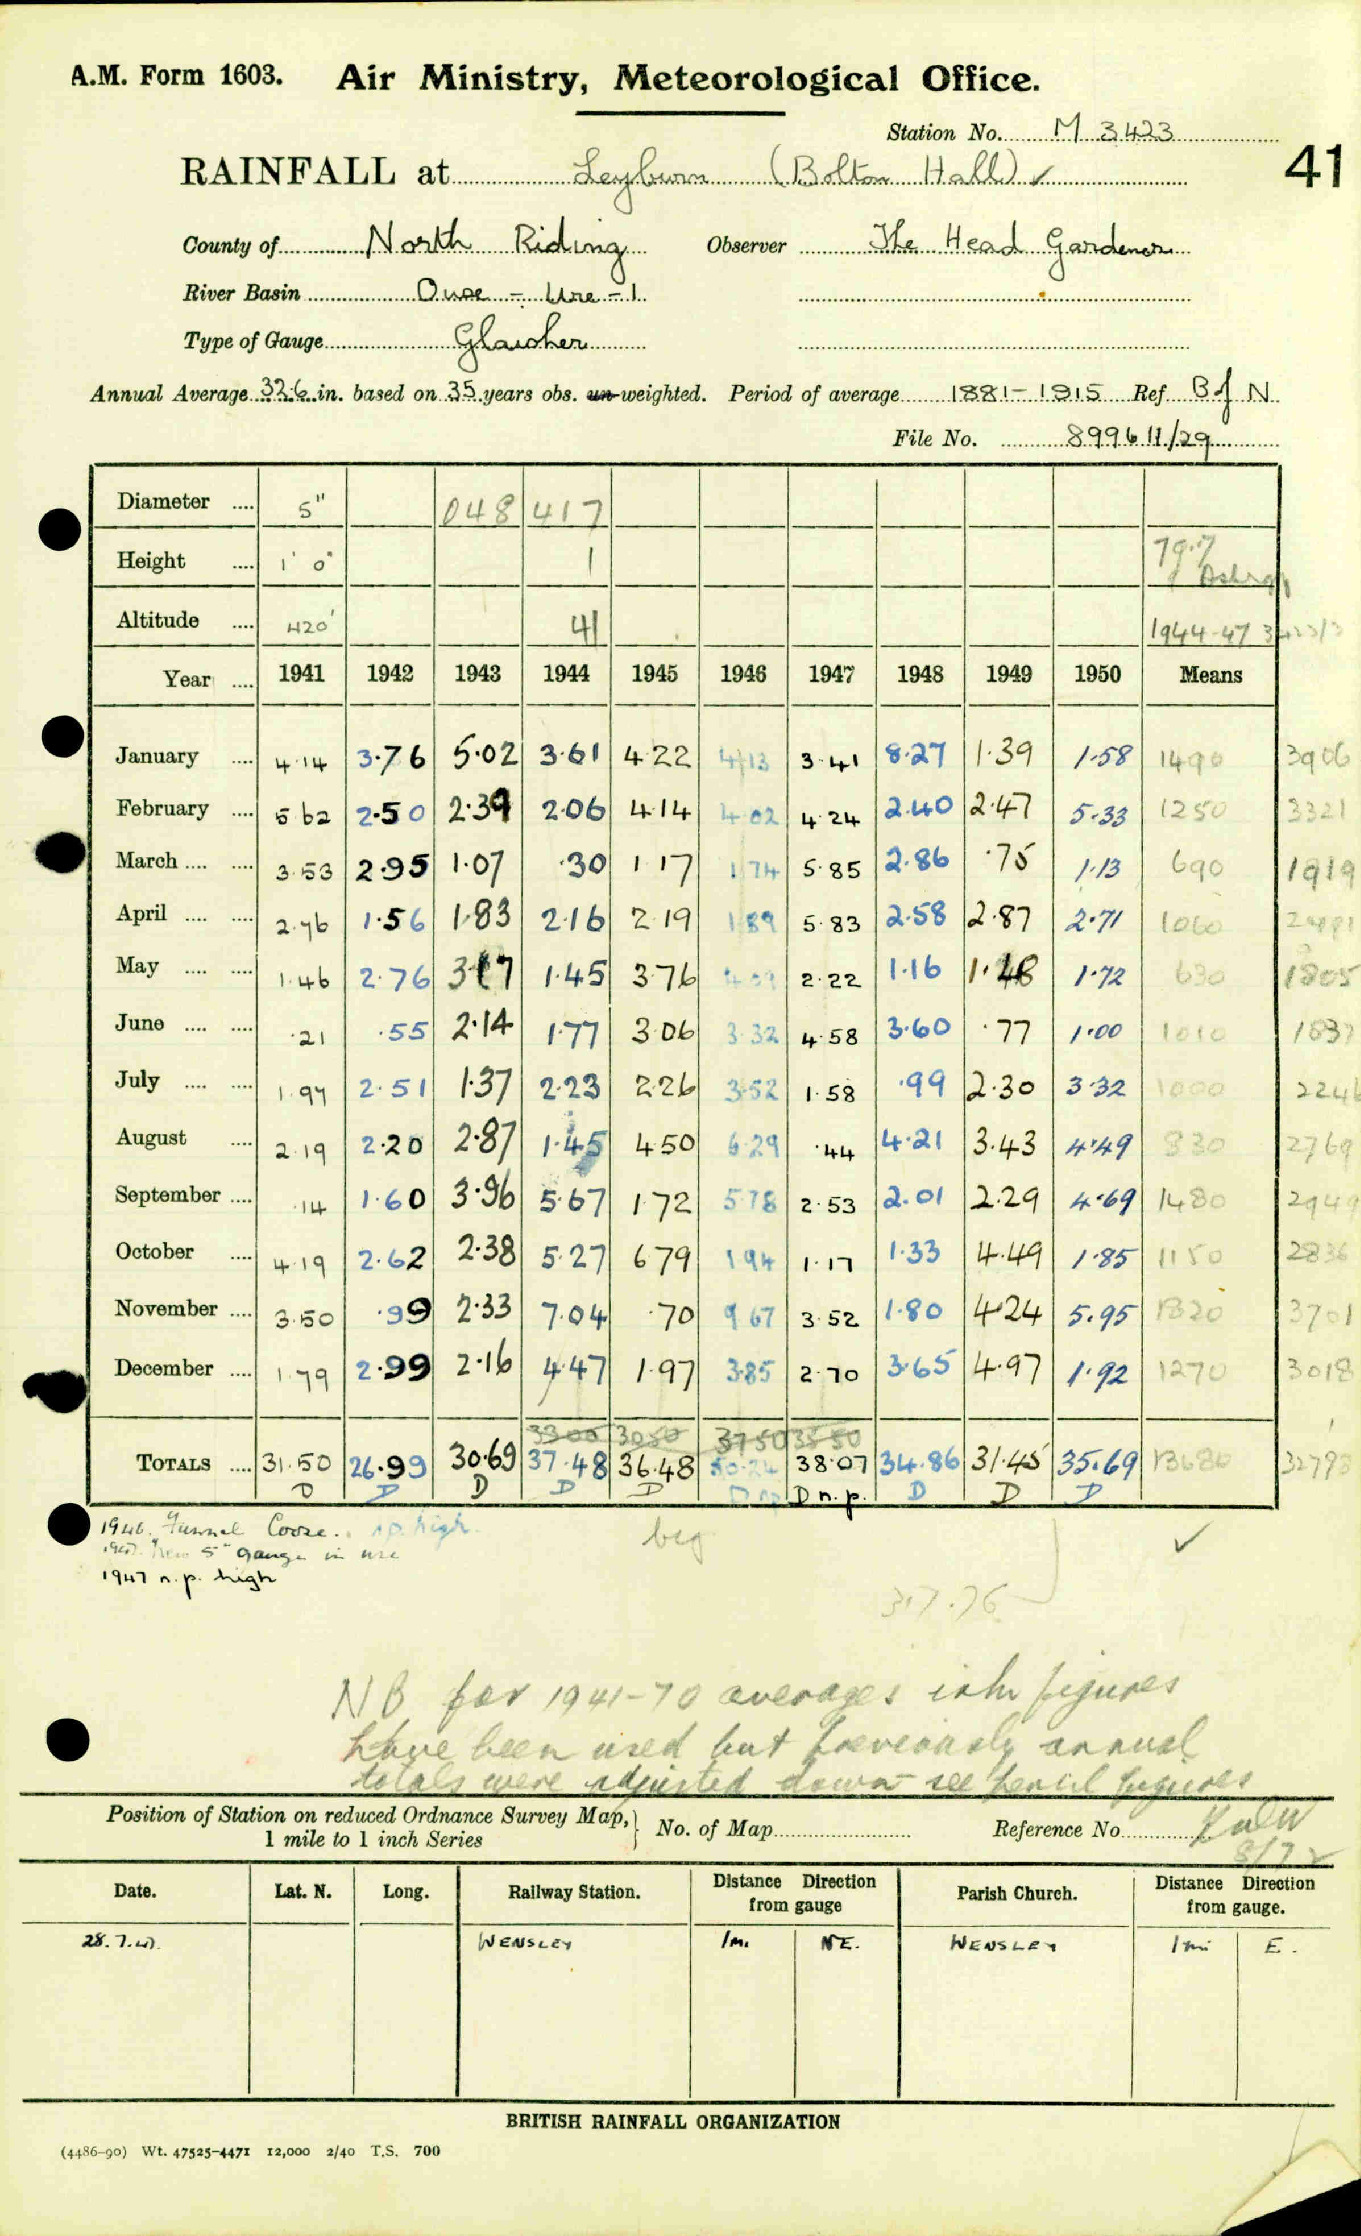 A.M. Form 1603. Air Ministry, Meteorological Office.
Station No. M 3423
41
RAINFALL at Leyburn (Bolton Hall) ✓
County of North Riding Observer The Head Gardener
River Basin Ouse - Ure - 1
Type of Gauge Glaisher
Annual Average 32.6 in. based on 35 years obs. un-weighted. Period of average 1881-1915 Ref. B of N
File No. 899611/29
Diameter .... 5" 048 417
Height .... 1' 0" 1 79.7
Altitude .... 420' 41 1944-47 3423/3
Year .... 1941 1942 1943 1944 1945 1946 1947 1948 1949 1950 Means
January .... 4.14 3.76 5.02 3.61 4.22 4.13 3.41 8.27 1.39 1.58 1490 3906
February .... 5.62 2.50 2.39 2.06 4.14 4.02 4.24 2.40 2.47 5.33 1250 3321
March .... .... 3.53 2.95 1.07 .30 1.17 1.74 5.85 2.86 .75 1.13 690 1919
April .... .... 2.76 1.56 1.83 2.16 2.19 1.89 5.83 2.58 2.87 2.71 1060
May .... .... 1.46 2.76 3.17 1.45 3.76 4.09 2.22 1.16 1.48 1.72 630 1805
June .... .... .21 .55 2.14 1.77 3.06 3.32 4.58 3.60 .77 1.00 1010
July .... .... 1.97 2.51 1.37 2.23 2.26 3.52 1.58 .99 2.30 3.32 1000 2246
August .... 2.19 2.20 2.87 1.45 4.50 6.29 .44 4.21 3.43 4.49 830 2769
September .... .14 1.60 3.96 5.67 1.72 5.78 2.53 2.01 2.29 4.69 1480 2949
October .... 4.19 2.62 2.38 5.27 6.79 1.94 1.17 1.33 4.49 1.85 1150 2836
November .... 3.50 .99 2.33 7.04 .70 9.67 3.52 1.80 4.24 5.95 1820 3701
December .... 1.79 2.99 2.16 4.47 1.97 3.85 2.70 3.65 4.97 1.92 1270 3018
3300 3050 3750 3550
TOTALS .... 31.50 26.99 30.69 37.48 36.48 50.24 38.07 34.86 31.45 35.69 13680
D D D D D D np D n.p. D D D
1946. Funnel loose. n.p. high.
1947. New 5" gauge in use
1947 n.p. high
✓
NB for 1941-70 averages inkn figures
have been used but previously annual
totals were adjusted down - see pencil figures
8/72
Position of Station on reduced Ordnance Survey Map, 1 mile to 1 inch Series No. of Map Reference No.
Date. Lat. N. Long. Railway Station. Distance Direction from gauge Parish Church. Distance Direction from gauge.
28.7.47. WENSLEY 1m. NE. WENSLEY 1mi E.
BRITISH RAINFALL ORGANIZATION
(4486-90) Wt. 47525-4471 12,000 2/40 T.S. 700